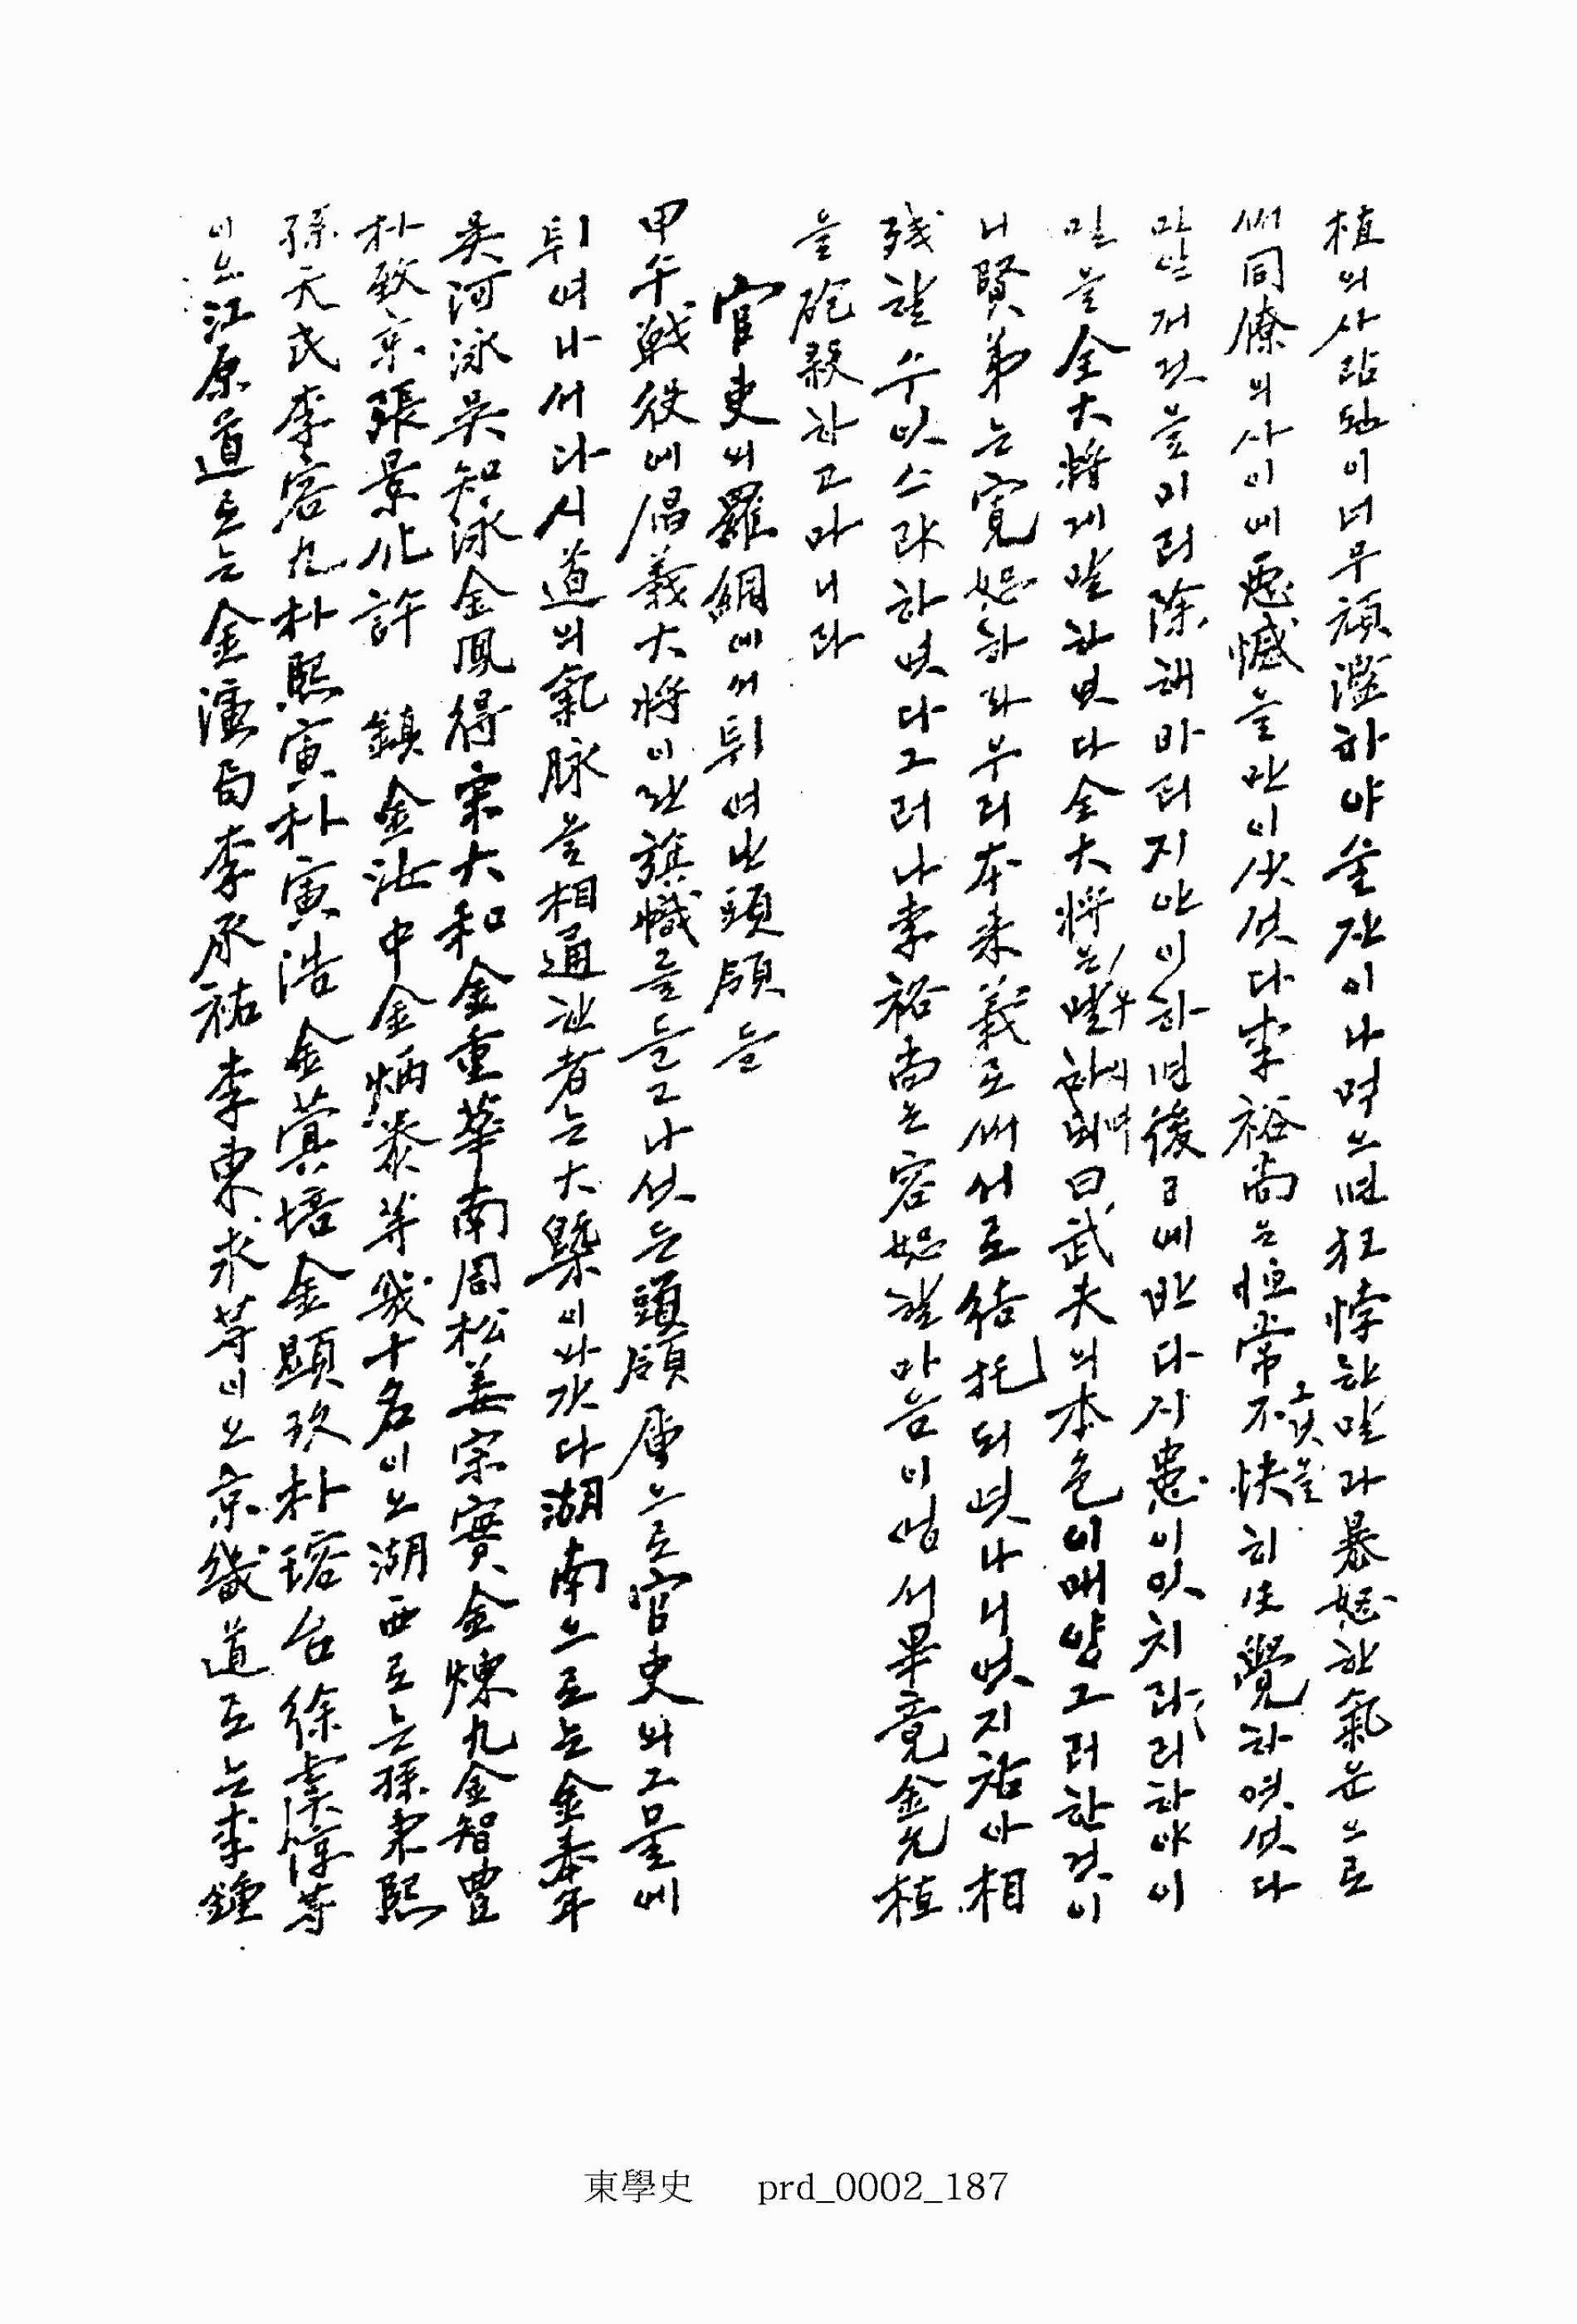 植의사람됨이너무頑濫하야술잔이나먹으면狂悖한말과暴怒한氣운으로
써同僚의사이에怨憾을만이삿섯다李裕尙은恒常그것을不快히生覺하엿섯다
만일저것을미리除해바리지안이하면後日에반다시患이잇치라리하야이
말을全大將게말하엿다全大將은우스며曰武夫의本色이매양그러한것이
니賢弟는寬恕하라우리本来義로써서로結托되엿나니엇지참아相
殘할수잇스랴하엿다그러나李裕尙은容恕할마음이업서畢竟金允植
을砲殺하고마니라
官吏의羅網에서튀여난頭領들
甲午戰役에倡義大將이란旗幟를들고나섯든頭領層으로官吏의그물에
튀여나서다시道의氣脉을相通한者는大槩이와갓다湖南으로는金奉年
吳河泳吳知泳金鳳得宋大和金重華南周松姜宗實金煉九金智豊
朴致京張景化許鎭金汝中金炳泰等幾十名이오湖西로는孫秉熙
孫天民李容九朴熙寅朴寅浩金蓂培金顯玖朴瑢台徐虞惇等
이오江原道로는金演局李承祐李東求等이오京畿道로는李鍾
東學史 prd_0002_187